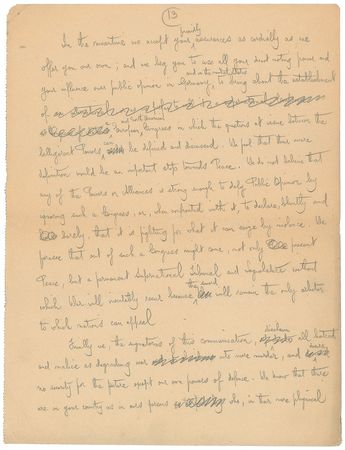 13
In the meantime we accept your friendly assurances as cordially as we
offer you our own; and we beg you to use all your direct voting power and
your influence over public opinion in Germany, to bring about the establishment
of a
European Congress in which the questions at issue between the
belligerent Powers can be defined and discussed. We feel that this mere
definition would be an important step towards Peace. We do not believe that
any of the Powers or Alliances is strong enough to defy Public Opinion by
ignoring such a Congress, or, when confronted with it, to declare, bluntly and
that it is fighting for what it can seize by violence. We
perceive that out of such a Congress might come, not only present
Peace, but a permanent Supernational Tribunal and Legislature without
which War will inevitably recur because the sword will remain the only arbiter
to which nations can appeal.
Finally we, the signatories of this communication, disclaim all hatred
and malice as degrading war into mere murder, and
no security for the future except our own powers of defence. We know that there
are in your country as in ours persons who, in their mere physical